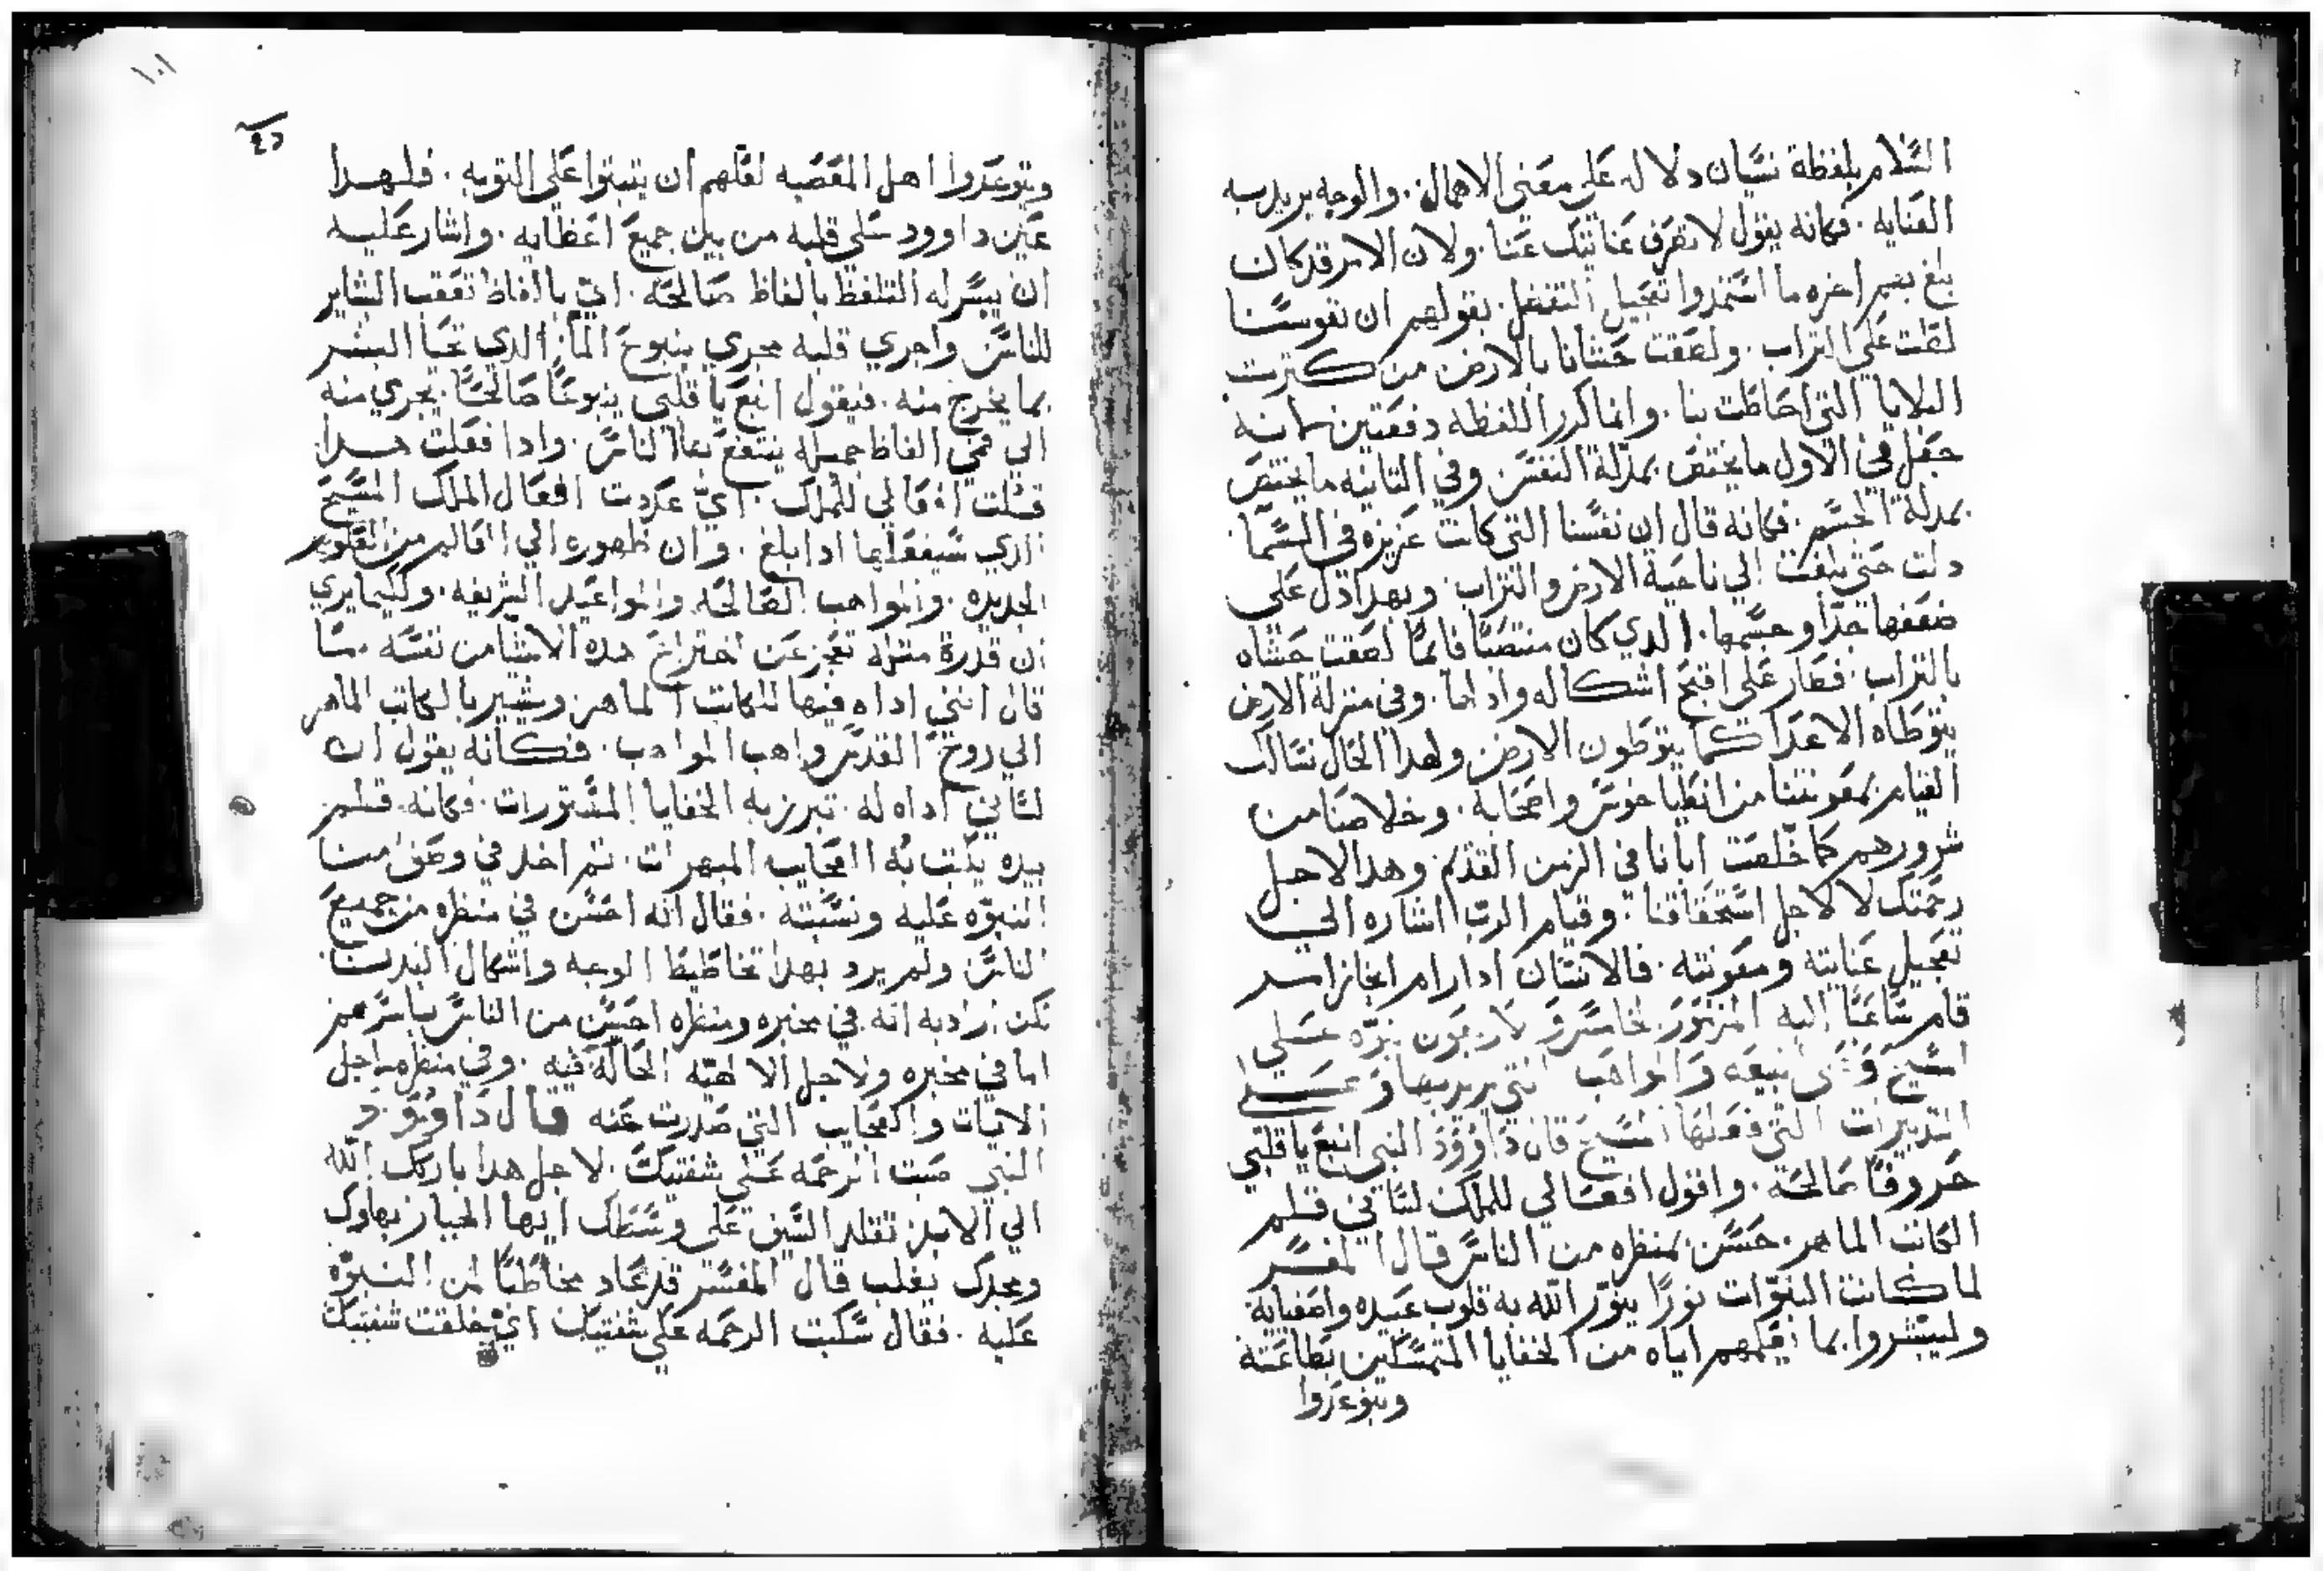 السلام بلفظة نسيان دلاله على معنى الاهمال. والوجه يريد به
العنايه. فكانه يقول لا تصرف عنايتك عنا. ولان الامر قد كان
بلغ بهم اخره ما استمدوا تعجيل التفضل. بقولهم ان نفوسنا
لصقت على التراب. ولصقت حشانا بالارض من كترت
البلايا التي احاطت بنا. وانما كرر اللفظه دفعتين لانه
جعل في الاول ما يختص بمذلة النفس وفي التانيه ما يختص
بمذلة الجسم. فكانه قال ان نفسنا التي كانت عزيزه في السما
دلت حتى بلغت الي ناحية الارض والتراب. وبهدا دل على
ضعفها جدا وجسمها. الدي كان منتصبا قايما لصقت حشاه
بالتراب. فصار على اقبح اشكاله وادلها. وفي منزلة الارض
يتوطاه الاعدا كما يتوطون الارض ولهدا الحال نسالك
القيام بمعونتنا من انطياخوس واصحابه. وخلاصنا من
شرورهم كما خلصت ابانا في الزمن القديم وهدا لاجل
رحمتك لا لاجل استحقاقنا. وقيام الرب اشاره الي
تعجيل عنايته ومعونته. فالانسان ادا رام انجاز امر
قام ساعيا اليه المزمور الخامس والاربعون نبوه على
المسيح وعلى البيعه والمواهب التي يريد بها وعلى
التدبيرات التي فعلها المسيح قال داوود النبي انبع يا قلبي
حروفا صالحة. واقول افعالي للملك لساني قلم
الكاتب الماهر. حسن بمنظره من الناس قال المفسر
لما كانت النبوات نورا ينور الله به قلوب عبيده واصفيايه
وليبشروا بما افهمهم اياه من الخفايا المتمسكين بطاعته
ويتوعدوا
١٠١
ويتوعدوا اهل المعصيه لعلهم ان يتبتوا على التوبه. فلهدا
عين داوود على قلبه من بين جميع اعضايه. واشار عليه
ان ييسر له التلفظ بالفاظ صالحه. اي بالفاظ تعقب البشاير
للناس واجري قلبه مجري ينبوع الما الدي تحيا البشر
بما يخرج منه. فيقول انبع يا قلبي ينبوعا صالحا. يجري منه
الي فمي الفاظ جميله ينتفع بها الناس. وادا فعلت هدا
قلت افعالي للملك. اي عددت افعال الملك المسيح
الدي سيفعلها ادا بلغ. وان ظهوره الي اقاليم من العلوم
الجديده. والمواهب الصالحه والمواعيد الشريفه. وكيما يري
ان قدرة متله تعجز عن اختراع هده الاشيا من نفسه
قال انني اداه فيها للكاتب الماهر ويشير بالكاتب الماهر
الي روح القدس واهب المواهب. فكانه يقول ان
لساني اداه له. تبرز به الخفايا المستورات. فكانه قلم
بيده يكتب به العجايب المبهرات. تم اخد في وصف من
النبوه عليه ونسبته. فقال انه احسن في منظره من جميع
الناس ولم يرد بهدا تخاطيط الوجه واشكال البدن
لكن اراد به انه في مخبره ومنظره احسن من الناس باسرهم
اما في مخبره ولاجل الالاهيه الحاله فيه. وفي منظره لاجل
الايات والعجايب التي صدرت عنه قال داوود
النبي صبت الرحمه على شفتيك. لاجل هدا باركك الله
الي الابد تقلد السيف على وسطك ايها الجبار بهاوك
ومجدك يغلب قال المفسر قد عاد مخاطبا لمن النبوه
عليه. فقال سكبت الرحمه على شفتيك اي خلقت شفتيك